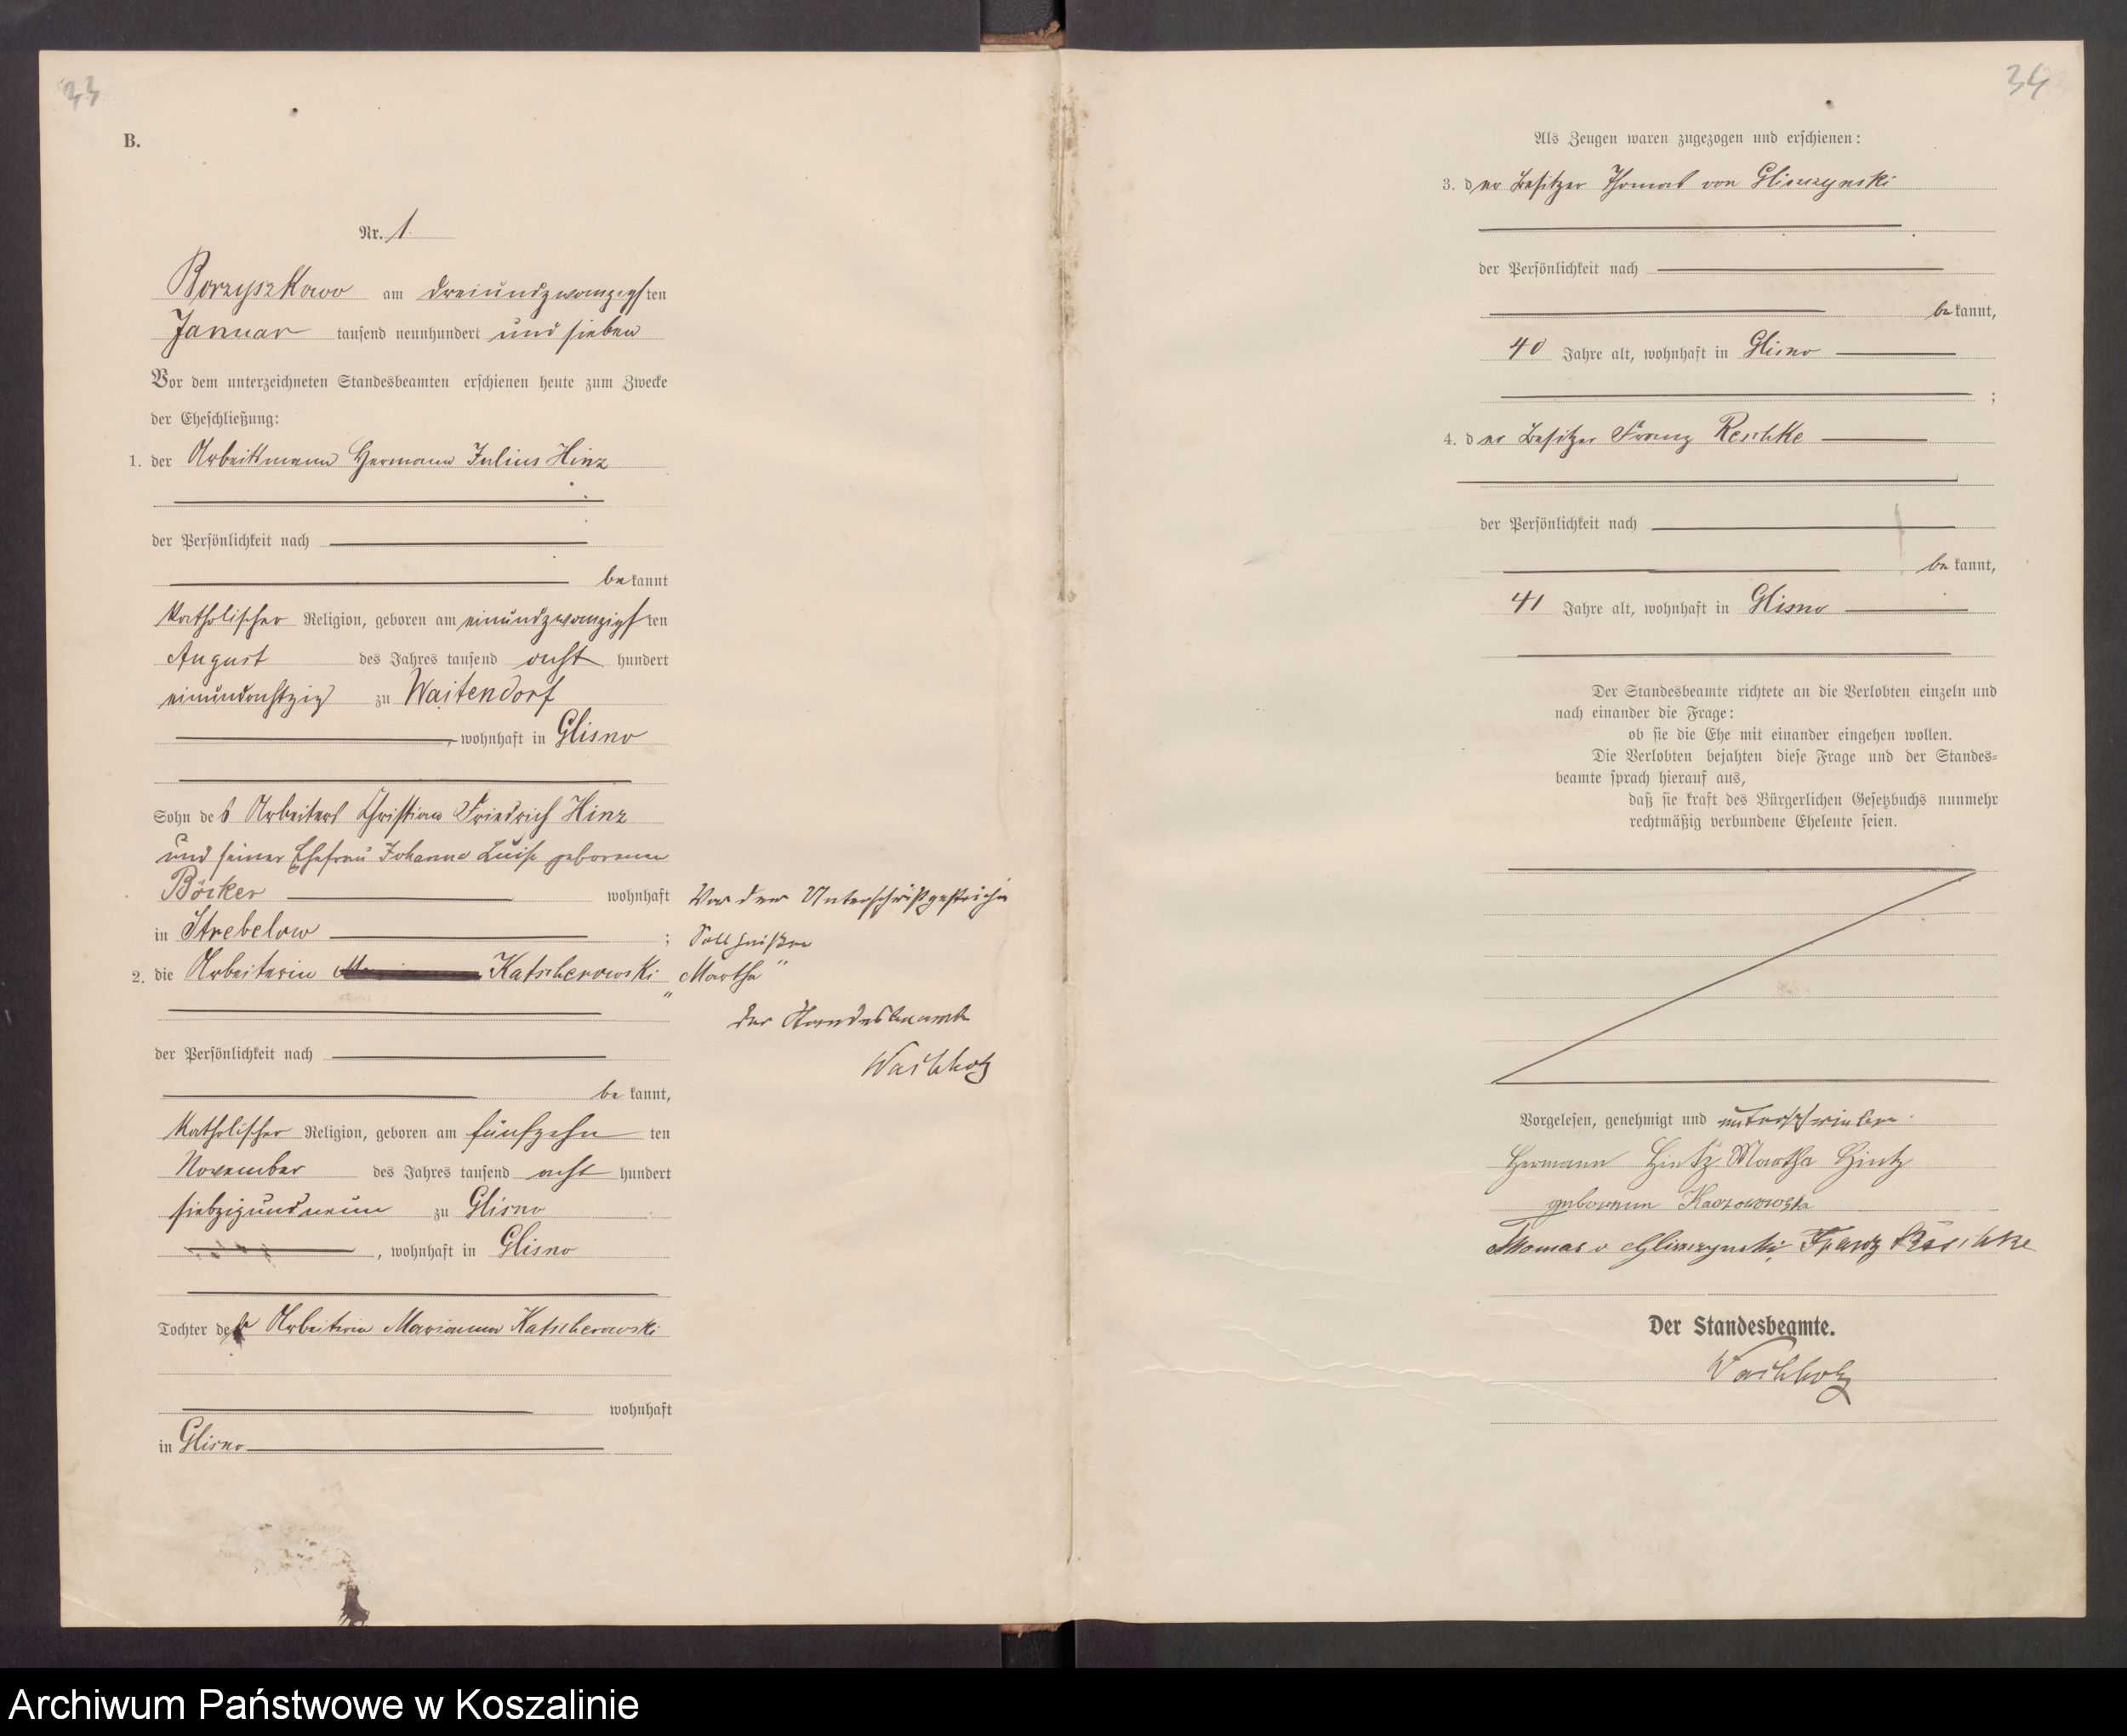 33
B.
Nr. 1.
Borzyszkowo am dreiundzwanzigsten
Januar tausend neunhundert und sieben
Vor dem unterzeichneten Standesbeamten erschienen heute zum Zwecke
der Eheschließung:
1. der Arbeitsmann Hermann Julius Hinz
der Persönlichkeit nach
bekannt
katholischer Religion, geboren am einundzwanzigsten
August des Jahres tausend acht hundert
einundachtzig zu Waitendorf
, wohnhaft in Glisno
Sohn des Arbeiters Christian Friedrich Hinz
und seiner Ehefrau Johanna Luise geborenen
Böcker wohnhaft
in Strebelow ;
2. die Arbeiterin Katscherowski
der Persönlichkeit nach
bekannt,
katholischer Religion, geboren am fünfzehn ten
November des Jahres tausend acht hundert
siebzigundneun zu Glisno
, wohnhaft in Glisno
Tochter der Arbeiterin Marianna Katscherowski
wohnhaft
in Glisno
Vor der Unterschrift gestrichen
Soll heißen
„Martha"
Der Standesbeamte
Wachholz
34
Als Zeugen waren zugezogen und erschienen:
3. der Besitzer Thomas von Gliszczynski
der Persönlichkeit nach
bekannt,
40 Jahre alt, wohnhaft in Glisno
;
4. der Besitzer Franz Reschke
der Persönlichkeit nach
bekannt,
41 Jahre alt, wohnhaft in Glisno
Der Standesbeamte richtete an die Verlobten einzeln und
nach einander die Frage:
ob sie die Ehe mit einander eingehen wollen.
Die Verlobten bejahten diese Frage und der Standes=
beamte sprach hierauf aus,
daß sie kraft des Bürgerlichen Gesetzbuchs nunmehr
rechtmäßig verbundene Eheleute seien.
Vorgelesen, genehmigt und unterschrieben.
Hermann Hintz Martha Hintz
geborenen
Thomas v Gliszczynski, Franz Räschke
Der Standesbeamte.
Wachholz
Archiwum Państwowe w Koszalinie